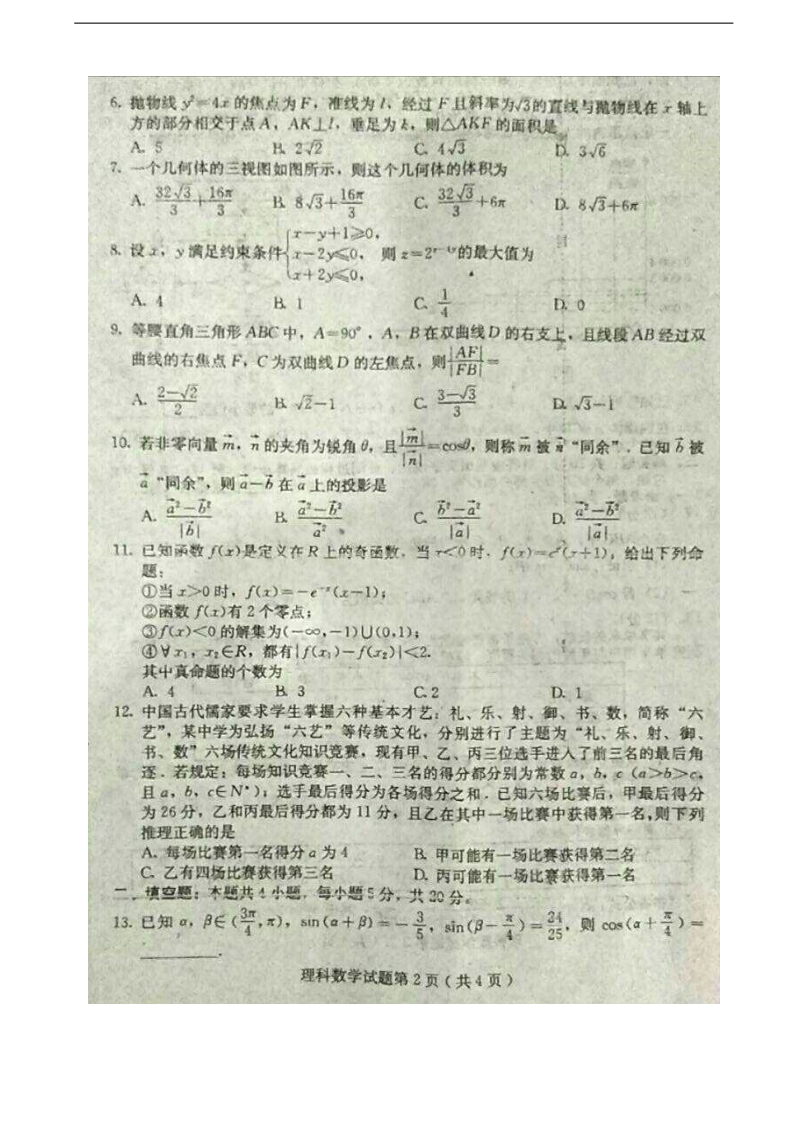 6. 抛物线 y²=4x 的焦点为 F，准线为 l，经过 F 且斜率为√3的直线与抛物线在 x 轴上
方的部分相交于点 A，AK⊥l，垂足为 k，则△AKF 的面积是
A. 5 B. 2√2 C. 4√3 D. 3√6
7. 一个几何体的三视图如图所示，则这个几何体的体积为
A. 32√3/3+16π/3 B. 8√3+16π/3 C. 32√3/3+6π D. 8√3+6π
8. 设 x，y 满足约束条件{x-y+1≥0, x-2y≤0, x+2y≤0, 则 z=2的最大值为
A. 4 B. 1 C. 1/4 D. 0
9. 等腰直角三角形 ABC 中，A=90°，A，B 在双曲线 D 的右支上，且线段 AB 经过双
曲线的右焦点 F，C 为双曲线 D 的左焦点，则|AF|/|FB|=
A. (2-√2)/2 B. √2-1 C. (3-√3)/3 D. √3-1
10. 若非零向量 m⃗，n⃗ 的夹角为锐角 θ，且|m⃗|/|n⃗|=cosθ，则称 m⃗ 被 n⃗ “同余”．已知 b⃗ 被
a⃗ “同余”，则 a⃗-b⃗ 在 a⃗ 上的投影是
A. (a⃗²-b⃗²)/|b⃗| B. (a⃗²-b⃗²)/a⃗² C. (b⃗²-a⃗²)/|a⃗| D. (a⃗²-b⃗²)/|a⃗|
11. 已知函数 f(x)是定义在 R 上的奇函数，当 x<0 时，f(x)=eˣ(x+1)，给出下列命
题：
①当 x>0 时，f(x)=-e⁻ˣ(x-1)；
②函数 f(x)有 2 个零点；
③f(x)<0 的解集为(-∞,-1)∪(0,1)；
④∀x₁，x₂∈R，都有|f(x₁)-f(x₂)|<2.
其中真命题的个数为
A. 4 B. 3 C. 2 D. 1
12. 中国古代儒家要求学生掌握六种基本才艺：礼、乐、射、御、书、数，简称“六
艺”，某中学为弘扬“六艺”等传统文化，分别进行了主题为“礼、乐、射、御、
书、数”六场传统文化知识竞赛，现有甲、乙、丙三位选手进入了前三名的最后角
逐．若规定：每场知识竞赛一、二、三名的得分都分别为常数 a，b，c（a>b>c，
且 a，b，c∈N*）；选手最后得分为各场得分之和．已知六场比赛后，甲最后得分
为 26 分，乙和丙最后得分都为 11 分，且乙在其中一场比赛中获得第一名，则下列
推理正确的是
A. 每场比赛第一名得分 a 为 4 B. 甲可能有一场比赛获得第二名
C. 乙有四场比赛获得第三名 D. 丙可能有一场比赛获得第一名
二、填空题：本题共 4 小题，每小题 5 分，共 20 分。
13. 已知 α，β∈(3π/4,π)，sin(α+β)=-3/5，sin(β-π/4)=24/25，则 cos(α+π/4)=
________.
理科数学试题第 2 页（共 4 页）